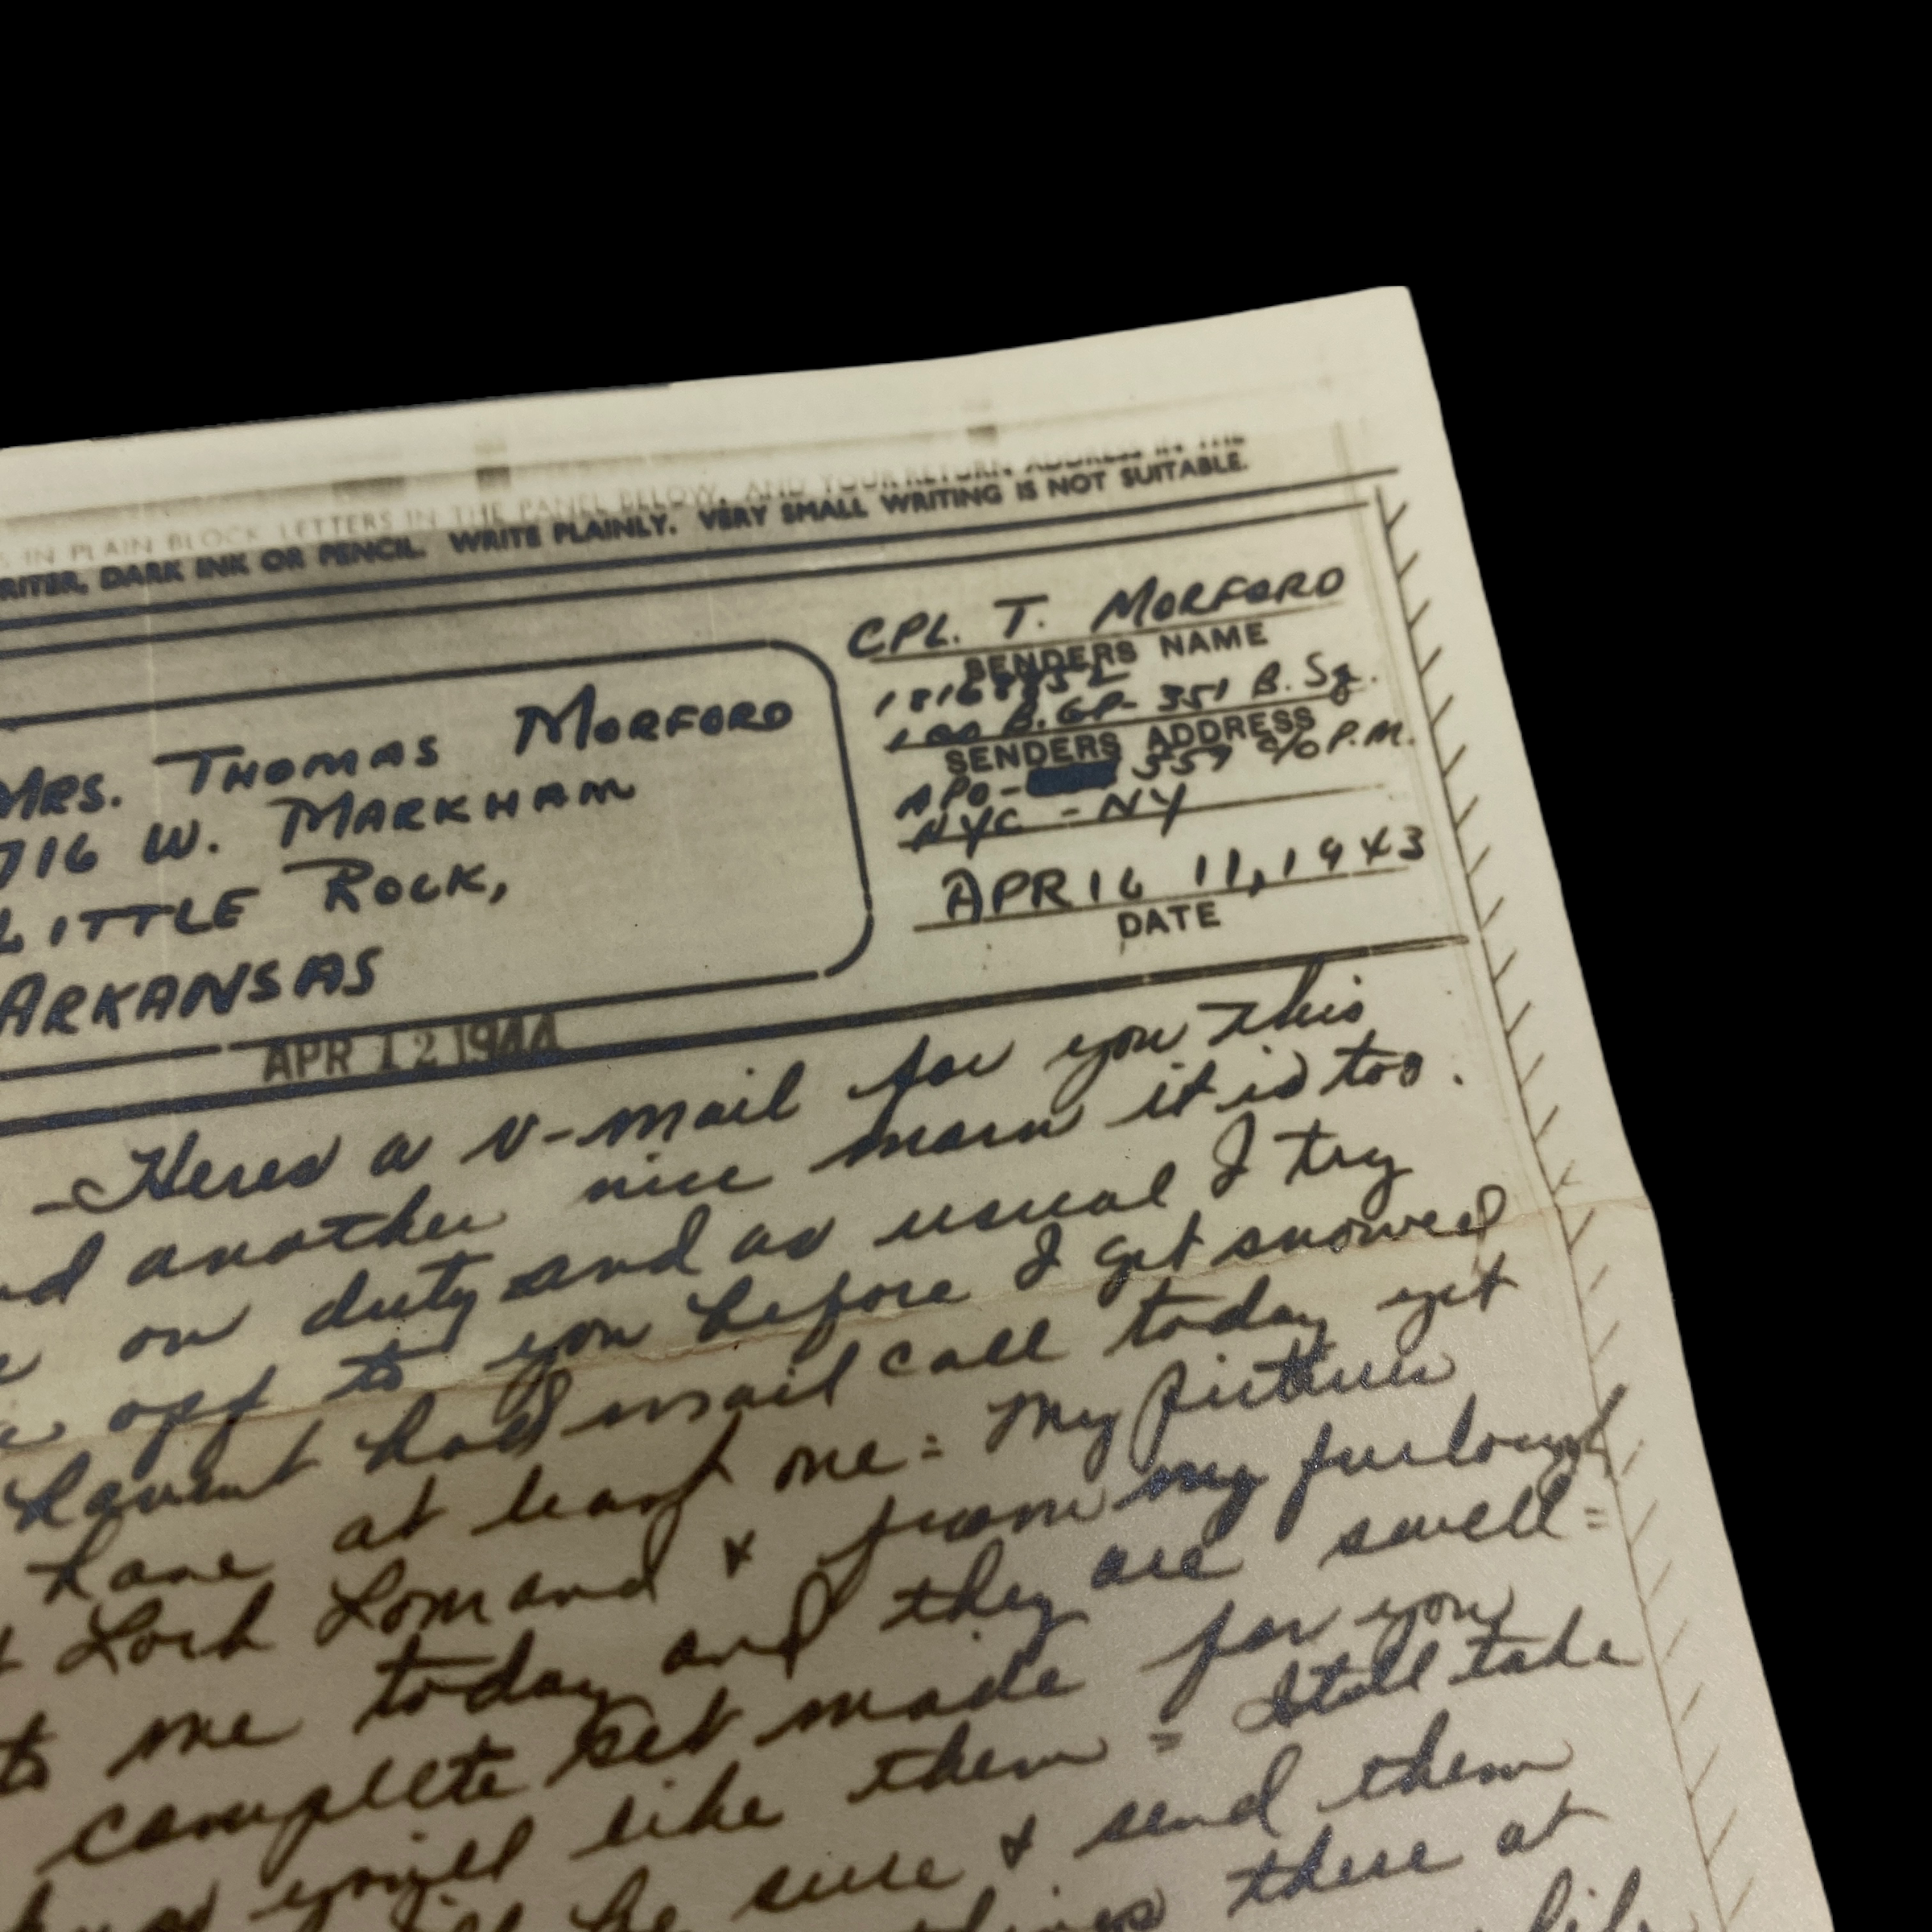 IN PLAIN BLOCK LETTERS IN THE PANEL BELOW, AND YOUR RETURN ADDRESS IN THE
RITER, DARK INK OR PENCIL. WRITE PLAINLY. VERY SMALL WRITING IS NOT SUITABLE.
MRS. THOMAS MORFORD
716 W. MARKHAM
LITTLE ROCK,
ARKANSAS
CPL. T. MORFORD
SENDERS NAME
100 B. GP- 351 B. Sq.
SENDERS ADDRESS
APO- 559 c/o P.M.
NYC - NY
APRIL 11, 1943
DATE
APR 12 1944
- Heres a V-mail for you this
another nice morn it is too.
on duty and as usual I try
off to you before I get snowed
havent had mail call today yet
have at least one = My pictures
Loch Lomand & from my furlough
to me today and they are swell =
complete set made for you
you'll like them = Still take
be sure & send them
there at